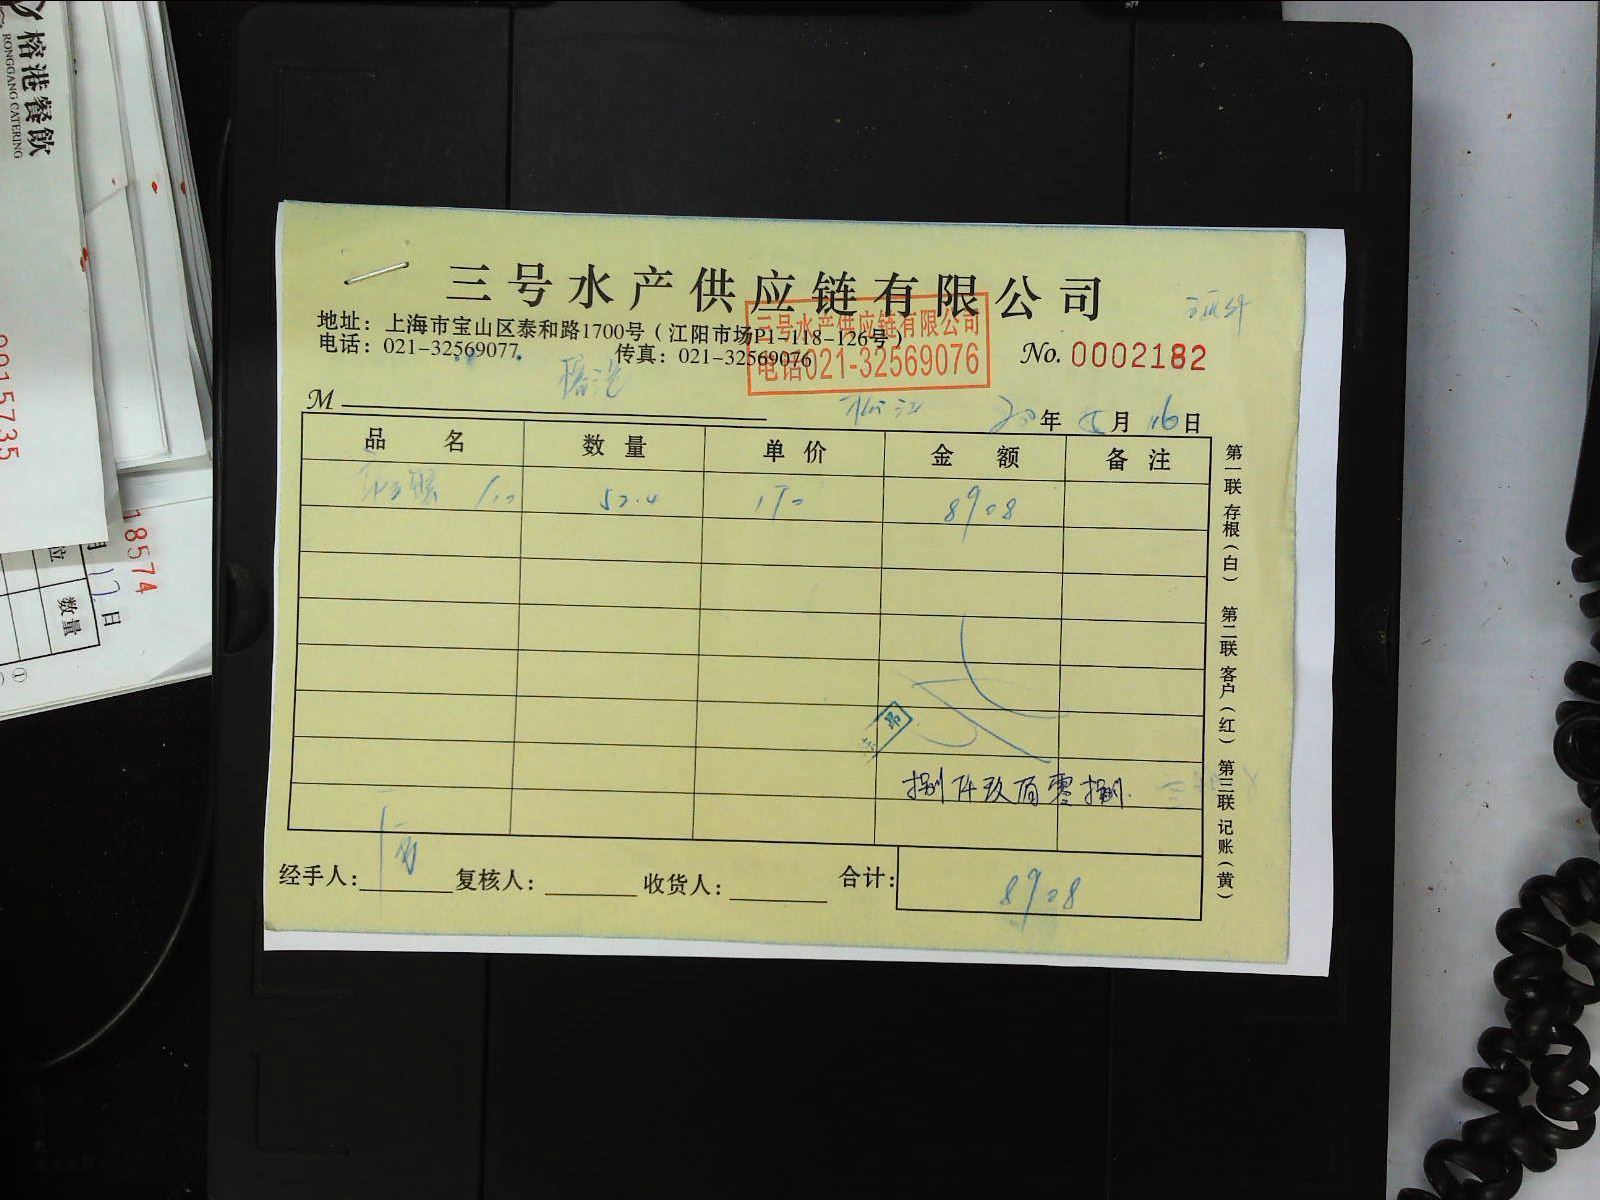 三号水产供应链有限公司
地址：上海市宝山区泰和路1700号（江阳市场P1-118-126号）
电话：021-32569077 传真：021-32569076
三号水产供应链有限公司
电话021-32569076
No. 0002182
榕港
M
20年 月16日
品名 数量 单价 金额 备注
52.4 170 8908
捌仟玖佰零捌
经手人： 复核人： 收货人： 合计： 8908
第一联 存根（白） 第二联 客户（红） 第三联 记账（黄）
榕港餐飲
RONGGANG CATERING
0015735
18574
17日
数量